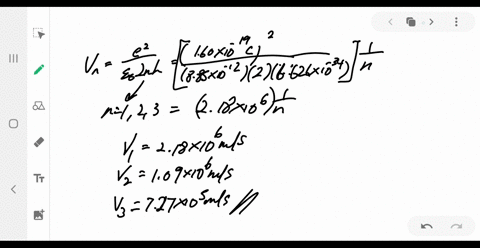 Vₙ = e²/(ε₀2nh) = [(1.60×10⁻¹⁹C)²/((8.85×10⁻¹²)(2)(6.626×10⁻³⁴))] 1/n
n=1,2,3 = (2.18×10⁶) 1/n
V₁ = 2.18×10⁶ m/s
V₂ = 1.09×10⁶ m/s
V₃ = 7.27×10⁵ m/s //
Tт